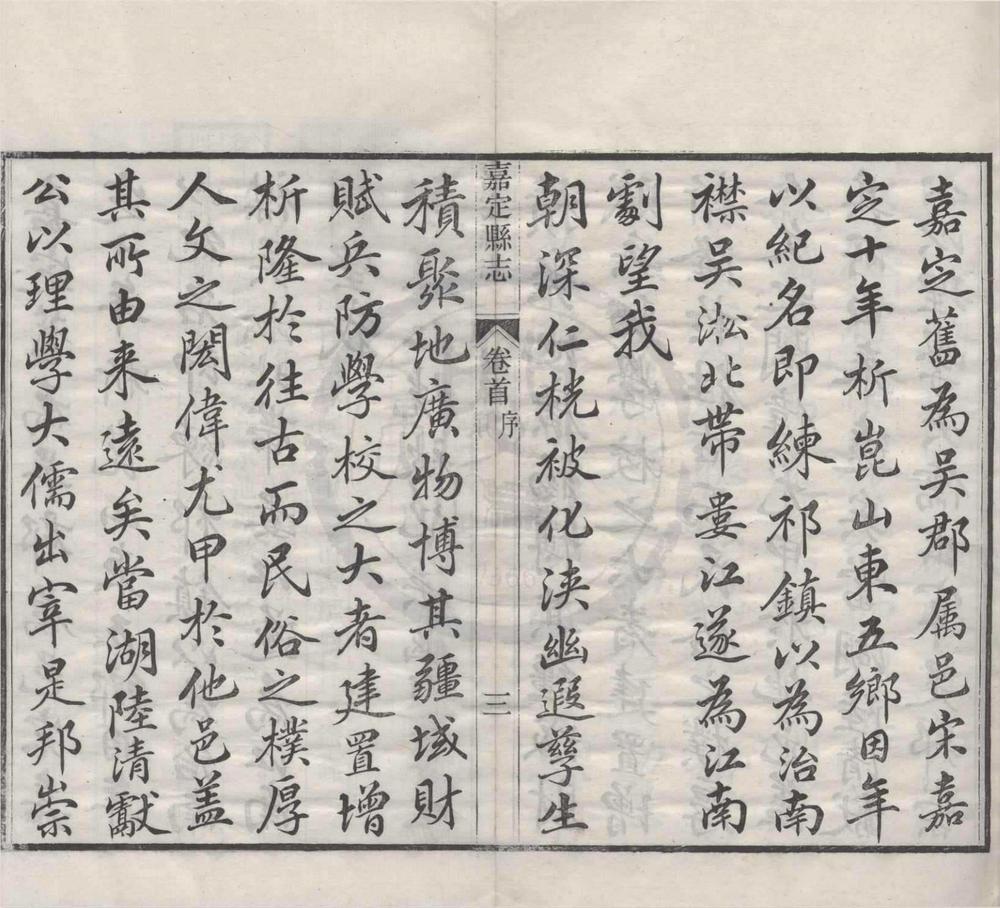 嘉定舊為吳郡属邑宋嘉
定十年析崑山東五鄉因年
以紀名即練祁鎮以為治南
襟吳淞北帶婁江遂為江南
劇望我
朝深仁桄被化浹幽遐孳生
嘉定縣志
卷首 序
三
積聚地廣物博其疆域財
賦兵防學校之大者建置增
析隆於往古而民俗之樸厚
人文之閎偉尤甲於他邑盖
其所由来遠矣當湖陸清獻
公以理學大儒出宰是邦崇